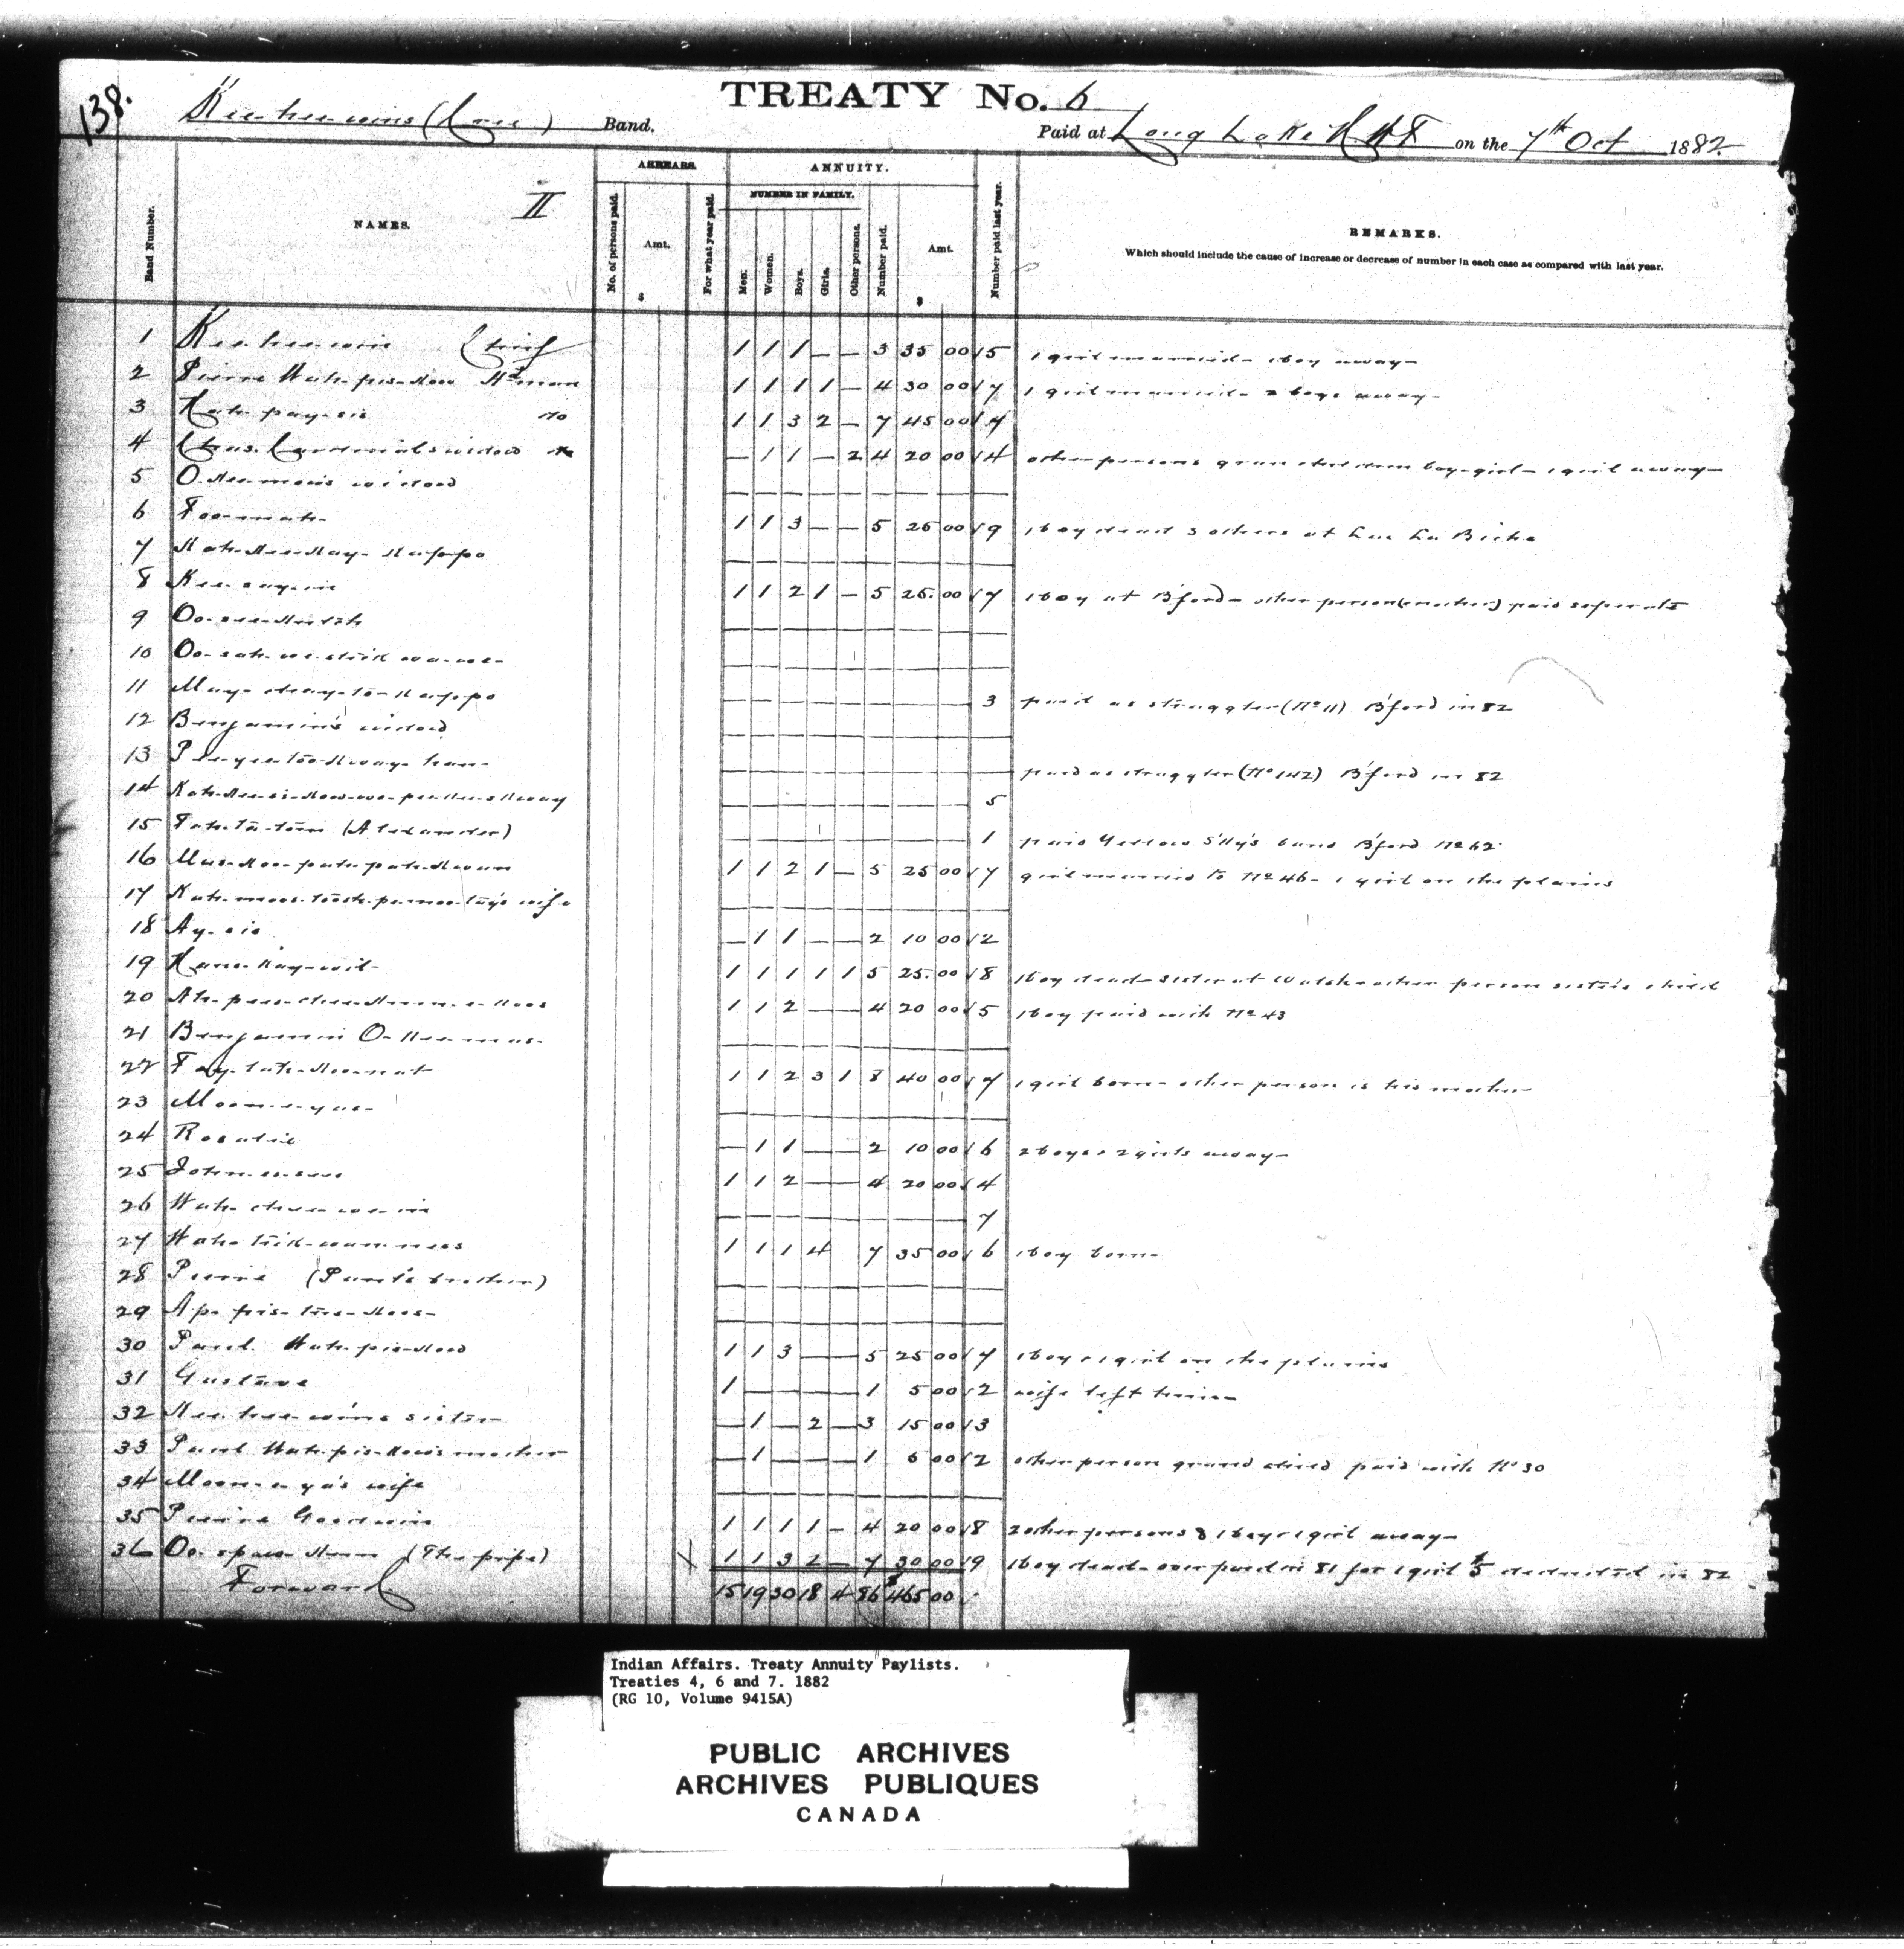 138.
TREATY No. 6
Kee-hee-wins (Cree) Band.
Paid at Long Lake N W T on the 7th Oct 1882
Band Number.
NAMES. II
ARREARS.
No. of persons paid.
Amt.
$
For what year paid.
ANNUITY.
NUMBER IN FAMILY.
Men.
Women.
Boys.
Girls.
Other persons.
Number paid.
Amt.
$
Number paid last year.
REMARKS.
Which should include the cause of increase or decrease of number in each case as compared with last year.
1 Kee-hee-win Chief 1 1 1 — — 3 35 00 5 1 girl married – 1 boy away –
2 Pierre Wah-pis-kow Hd man 1 1 1 1 — 4 30 00 7 1 girl married – 2 boys away –
3 Kah-pay-sis do 1 1 3 2 — 7 45 00 7
4 Chas. Cardinal's widow — 1 1 — 2 4 20 00 4 other persons grand children boy – girl – 1 girl away –
5 O-kee-mow's widow
6 1 1 3 — — 5 25 00 9 1 boy dead 3 others at Lac La Biche
7
8 Kee-say-in 1 1 2 1 — 5 25.00 7 1 boy at B'ford – other person (mother) paid seperate
9
10
11 3 paid as straggler (No 11) B'ford in 82
12 Benjamin's widow
13 paid as straggler (No 142) B'ford in 82
14 5
15 (Alexander) 1 paid Yellow S'ky's band B'ford No 62
16 Mus-koo-pah-pah-kwun 1 1 2 1 — 5 25 00 7 girl married to No 46 – 1 girl on the plains
17 wife
18 Ay-sis — 1 1 — — 2 10 00 2
19 1 1 1 1 1 5 25.00 8 1 boy dead – sister at Walsh – other person sister's child
20 1 1 2 — — 4 20 00 5 1 boy paid with No 43
21 Benjamin O-kee-mas-
22 1 1 2 3 1 8 40 00 7 1 girl born – other person is his mother
23 Moon-e-yas-
24 Rosalie — 1 1 — — 2 10 00 6 2 boys & 2 girls away –
25 1 1 2 — — 4 20 00 4
26 7
27 1 1 1 4 7 35 00 6 1 boy born –
28 Pierre (Paul's brother)
29
30 Paul Wah-pis-kow 1 1 3 — — 5 25 00 7 1 boy & 1 girl on the plains
31 Gustave 1 — — — — 1 5 00 2 wife left him –
32 Kee-hee-win's sister — 1 — 2 — 3 15 00 3
33 Paul Wah-pis-kow's mother — 1 — — — 1 5 00 2 other person grand child paid with No 30
34 Moon-e-ya's wife
35 Pierre Goodwin 1 1 1 1 — 4 20 00 8 2 other persons & 1 boy & 1 girl away –
36 (The pipe) 1 1 3 2 — 7 30 00 9 1 boy dead – over paid in 81 for 1 girl $5 deducted in 82
Forward 15 19 30 18 4 86 $465 00
Indian Affairs. Treaty Annuity Paylists.
Treaties 4, 6 and 7. 1882
(RG 10, Volume 9415A)
PUBLIC ARCHIVES
ARCHIVES PUBLIQUES
CANADA